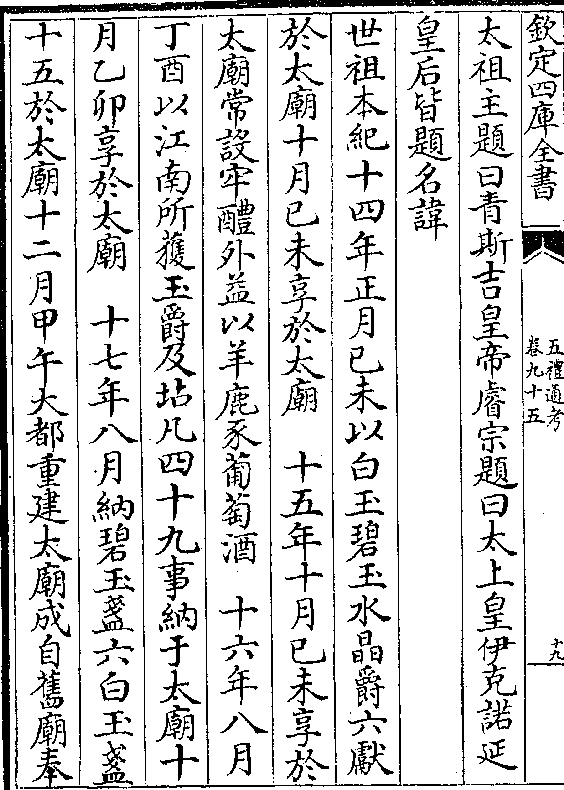 欽定四庫全書
五禮通考
卷九十五
十九
太祖主題曰青斯吉皇帝睿宗題曰太上皇伊克諾延
皇后皆題名諱
世祖本紀十四年正月己未以白玉碧玉水晶爵六獻
於太廟十月己未享於太廟　十五年十月己未享於
太廟常設牢醴外益以羊鹿豕葡萄酒　十六年八月
丁酉以江南所獲玉爵及坫凡四十九事納于太廟十
月乙卯享於太廟　十七年八月納碧玉盞六白玉盞
十五於太廟十二月甲午大都重建太廟成自舊廟奉